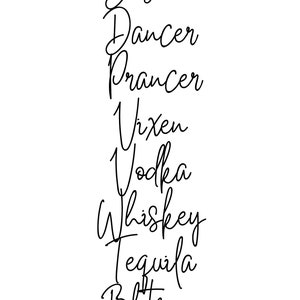 Dancer
Prancer
Vixen
Vodka
Whiskey
Tequila